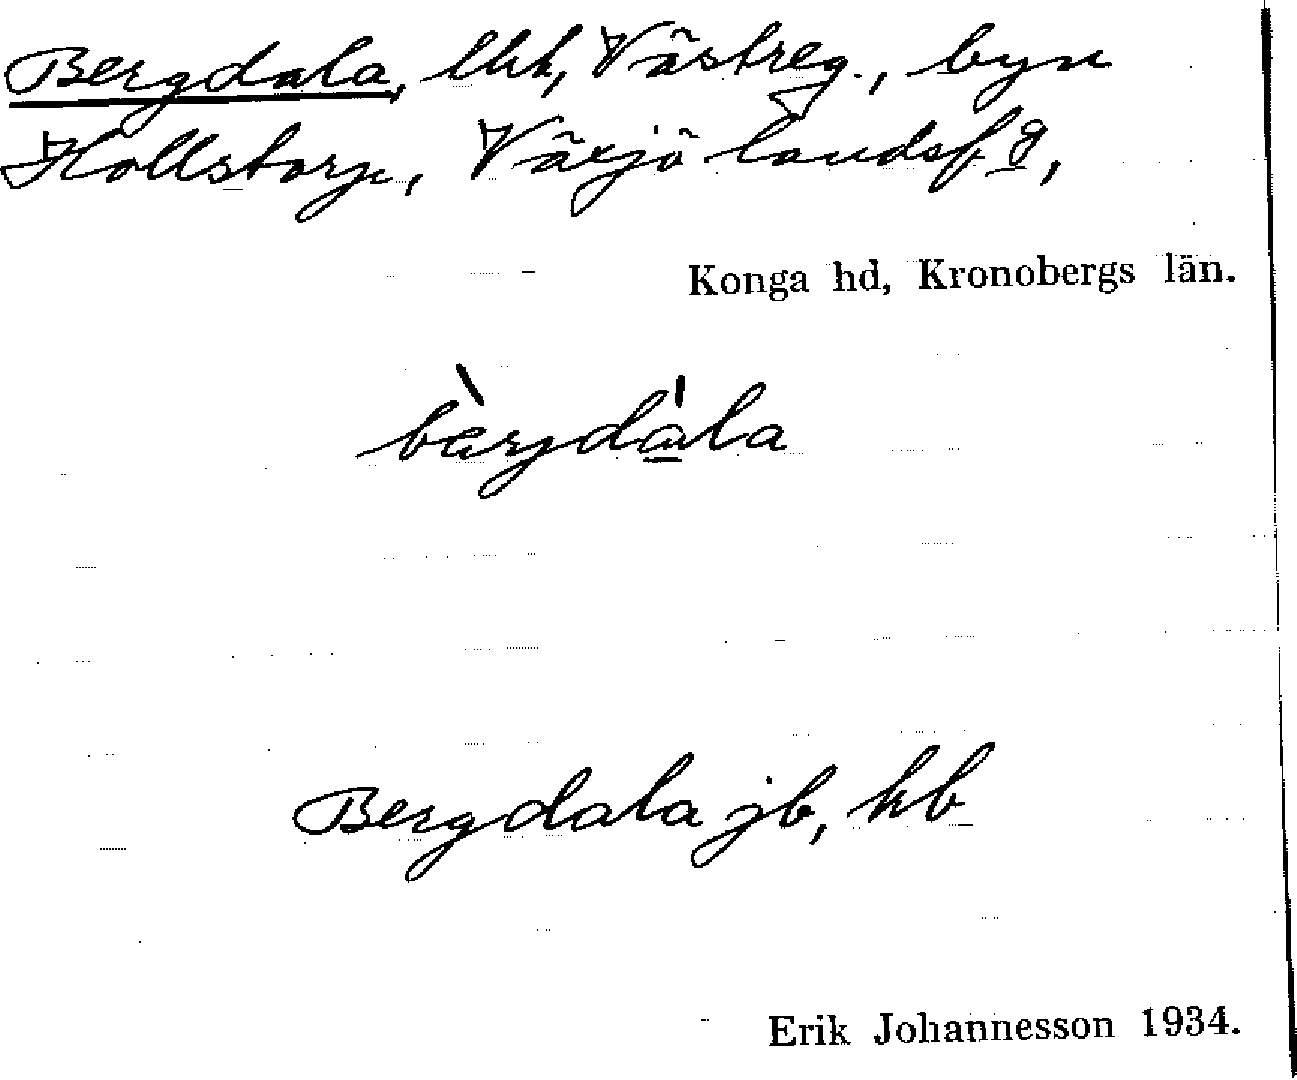 Bergdala, lht, Västreg., byn
Hollstorp, Växjö landsf g,
Konga hd, Kronobergs län.
bærjdala
Bergdala jb, hb
Erik Johannesson 1934.